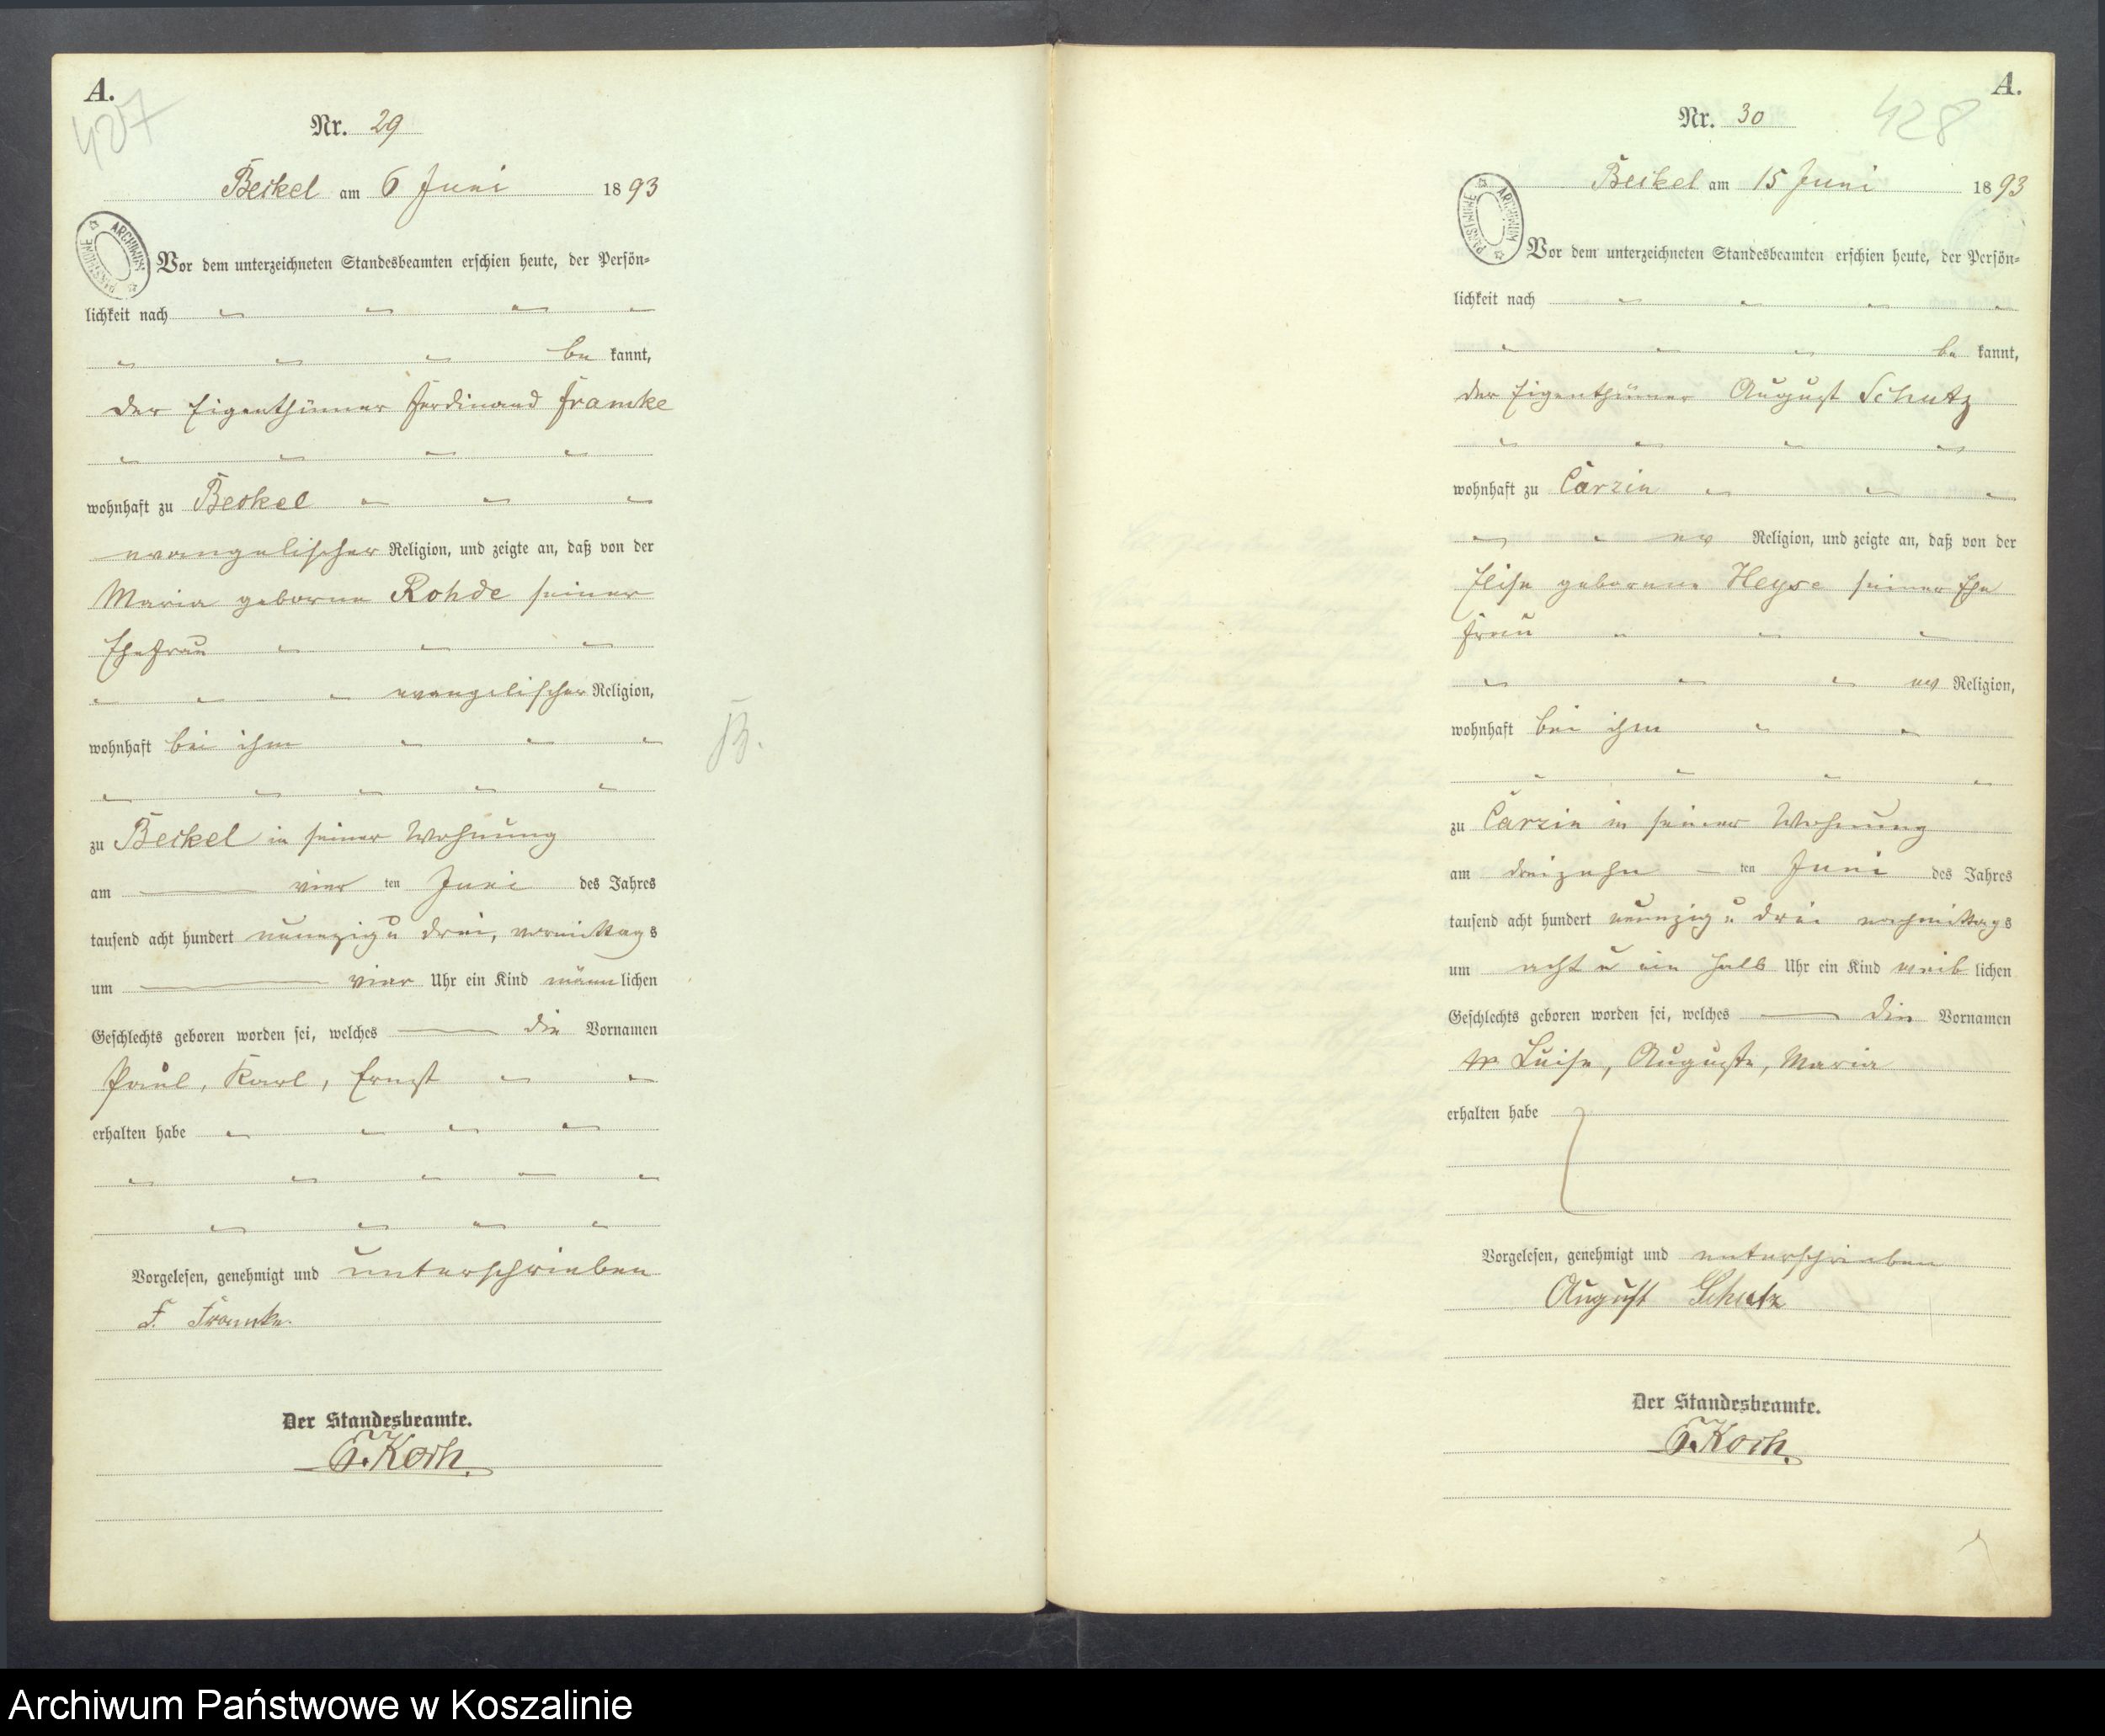 A.
427
Nr. 29
Beskel am 6 Juni 1893
ARCHIWUM PAŃSTWOWE
Vor dem unterzeichneten Standesbeamten erschien heute, der Persön-
lichkeit nach
be kannt,
der Eigenthümer Ferdinand Framke
wohnhaft zu Beskel
evangelischer Religion, und zeigte an, daß von der
Maria geborne Rohde seiner
Ehefrau
evangelischer Religion,
wohnhaft bei ihm
zu Beskel in seiner Wohnung
am vier ten Juni des Jahres
tausend acht hundert neunzig u drei, vormittags
um vier Uhr ein Kind männlichen
Geschlechts geboren worden sei, welches die Vornamen
Paul, Karl, Ernst
erhalten habe
Vorgelesen, genehmigt und unterschrieben
F. Framke.
Der Standesbeamte.
Koch.
B.
A.
428
Nr. 30
Beskel am 15 Juni 1893
ARCHIWUM PAŃSTWOWE
Vor dem unterzeichneten Standesbeamten erschien heute, der Persön-
lichkeit nach
be kannt,
der Eigenthümer August Schutz
wohnhaft zu Carzin
ev Religion, und zeigte an, daß von der
Elise geborene Heyse seiner Ehe
frau
ev Religion,
wohnhaft bei ihm
zu Carzin in seiner Wohnung
am dreizehn ten Juni des Jahres
tausend acht hundert neunzig u drei nachmittags
um acht u ein halb Uhr ein Kind weiblichen
Geschlechts geboren worden sei, welches die Vornamen
Luise, Auguste, Maria
erhalten habe
Vorgelesen, genehmigt und unterschrieben
August Schutz
Der Standesbeamte.
Koch.
Archiwum Państwowe w Koszalinie